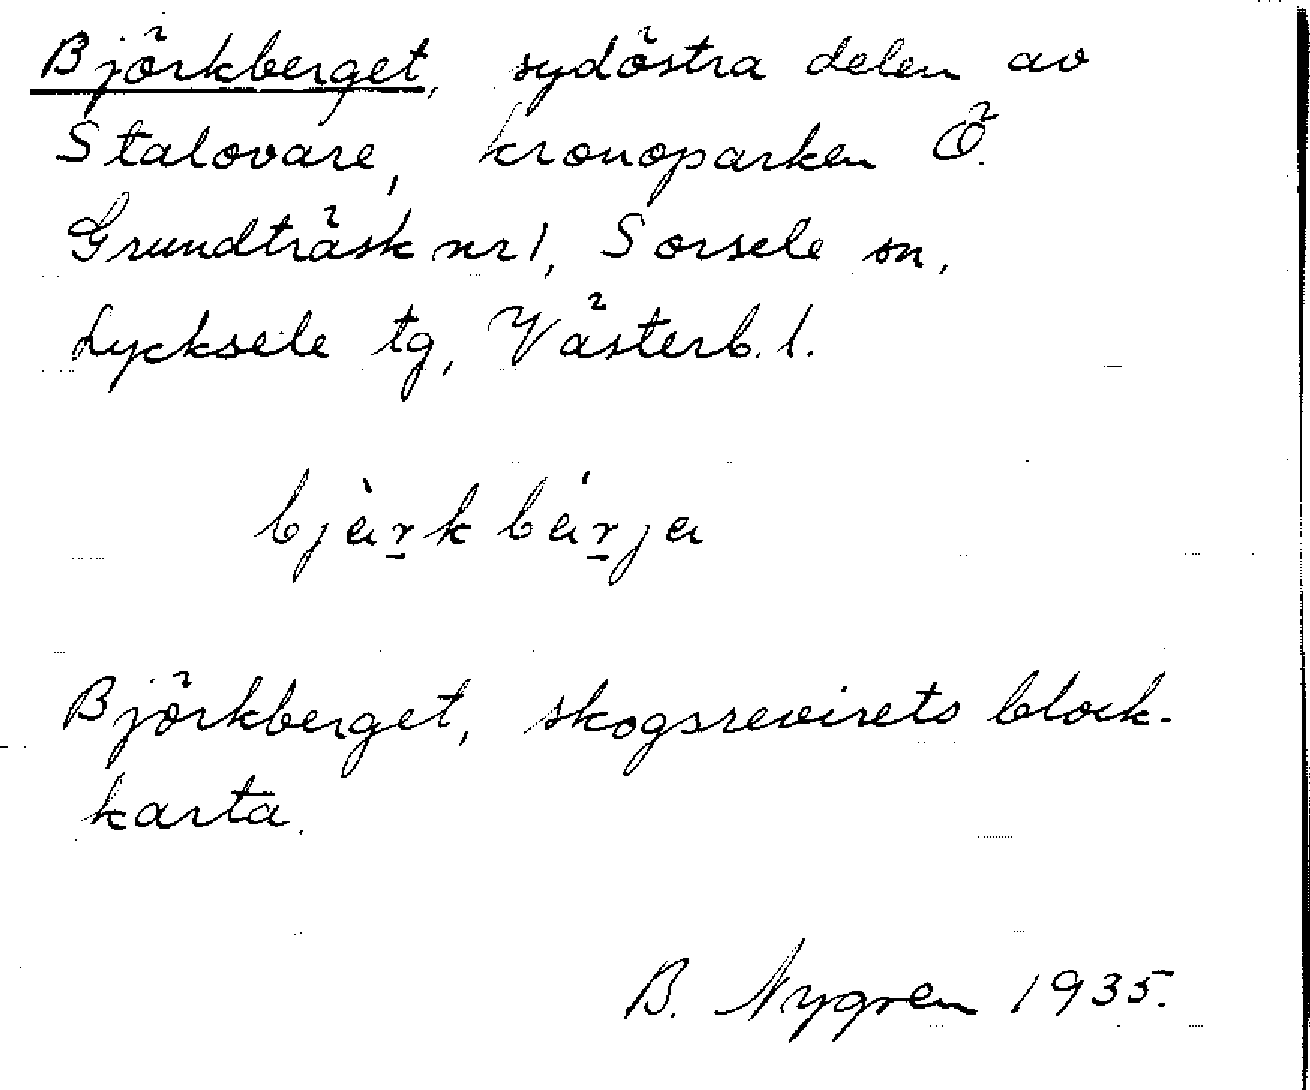 Björkberget, sydöstra delen av
Stalovare, kronoparken Ö.
Grundträsk nr 1, Sorsele sn,
Lycksele tg, Västerb. l.
Björkberget, skogsrevirets block-
karta.
B. Nygren 1935.